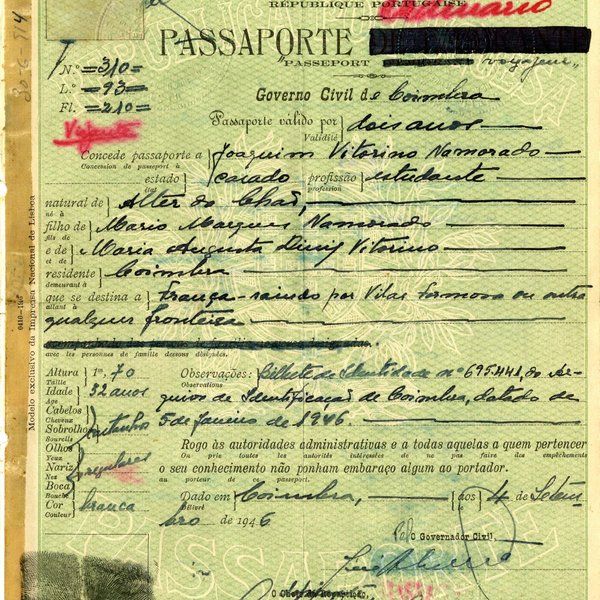 RÉPUBLIQUE PORTUGAISE
PASSAPORTE
"PASSEPORT voyageur"
N.º =310=
L.º =93=
Fl. =210=
Governo Civil de Coimbra
Passaporte válido por dois anos
Validité
Viajante
Concede passaporte a Joaquim Vitorino Namorado
Concession de passeport à
estado casado profissão estudante
état profession
natural de Alter do Chão,
né à
filho de Mario Marques Namorado
fils de
e de Maria Augusta Diniz Vitorino
et de
residente Coimbra
demeurant à
que se destina a França - saindo por Vilar Formoso ou outra
allant à
qualquer fronteira
avec les personnes de famille dessous désignées.
Altura 1m,70 Observações: Bilhete de Identidade nº 695.441, do Ar-
Taille Observations
Idade 32 anos quivo de Identificação de Coimbra, datado de
Age
Cabelos 5 de Janeiro de 1946.
Cheveux
Sobrolhos castanhos
Sourcils
Olhos Rogo às autoridades administrativas e a todas aquelas a quem pertencer
Yeux On prie toutes les autorités intéressées de ne pas faire des empêchements
Nariz regulares o seu conhecimento não ponham embaraço algum ao portador.
Nez au porteur de ce passeport.
Boca
Bouche
Cor branca Dado em Coimbra, aos 4 de Setem-
Couleur Délivré
bro de 1946
O Governador Civil,
Modelo exclusivo da Imprensa Nacional de Lisboa